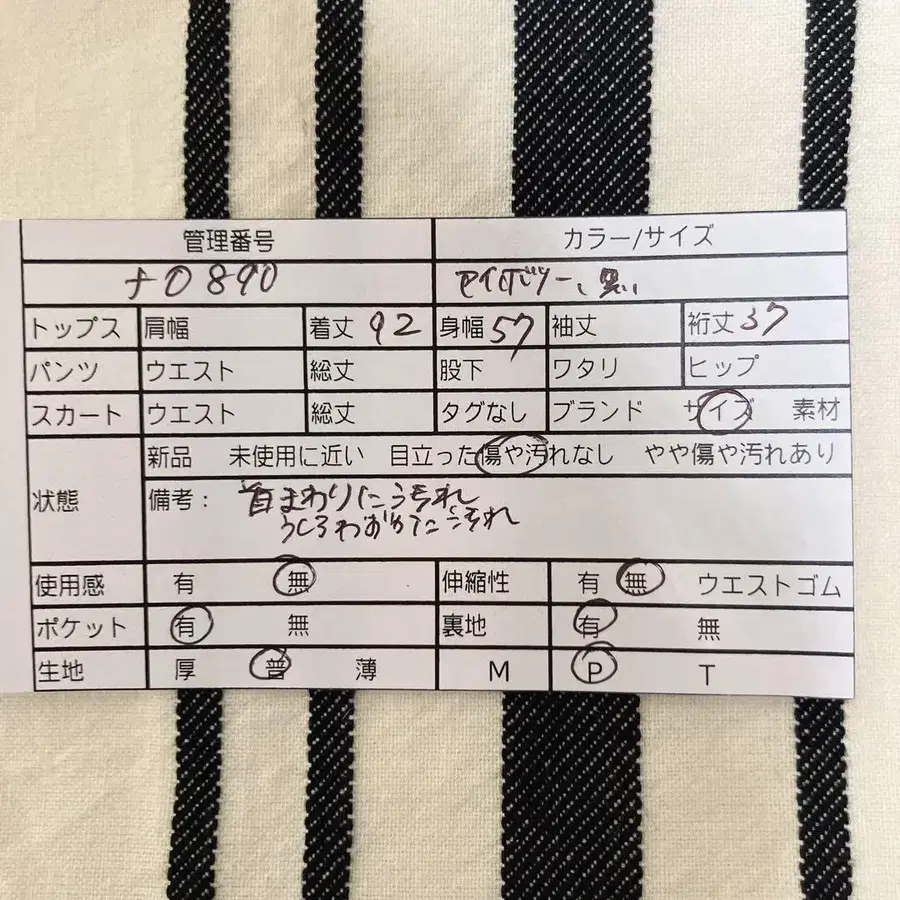 管理番号 カラー/サイズ
ナ0890 アイボリー、黒
トップス 肩幅 着丈 92 身幅 57 袖丈 裄丈 37
パンツ ウエスト 総丈 股下 ワタリ ヒップ
スカート ウエスト 総丈 タグなし ブランド サイズ 素材
状態 新品 未使用に近い 目立った傷や汚れなし やや傷や汚れあり
備考： 首まわりにうす汚れ
汚れ
使用感 有 無 伸縮性 有 無 ウエストゴム
ポケット 有 無 裏地 有 無
生地 厚 普 薄 M P T